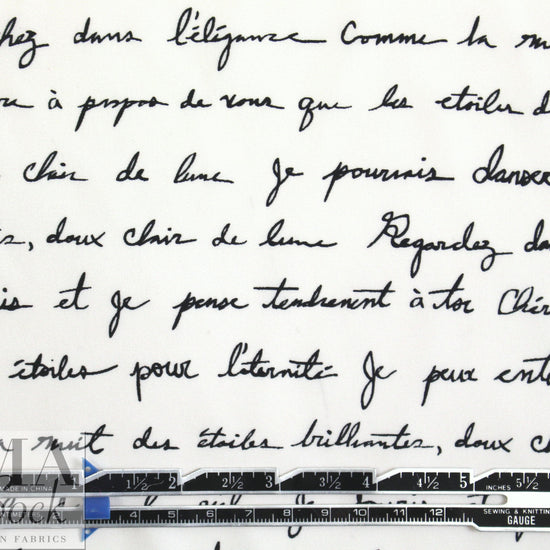 chez dans l'élégance Comme la
à propos de vous que les etoiles
clair de lune Je pourrais danser
doux clair de lune Regardez
et je pense tendrement à toi Chér
étoiles pour l'éternité Je peux
nuit des étoiles brillantes, doux
MADE IN CHINA 1 1/2 2 2 1/2 3 3 1/2 4 4 1/2 5 INCHES 5 1/2
4 5 6 7 8 9 10 11 12 SEWING & KNITTING GAUGE
FABRICS